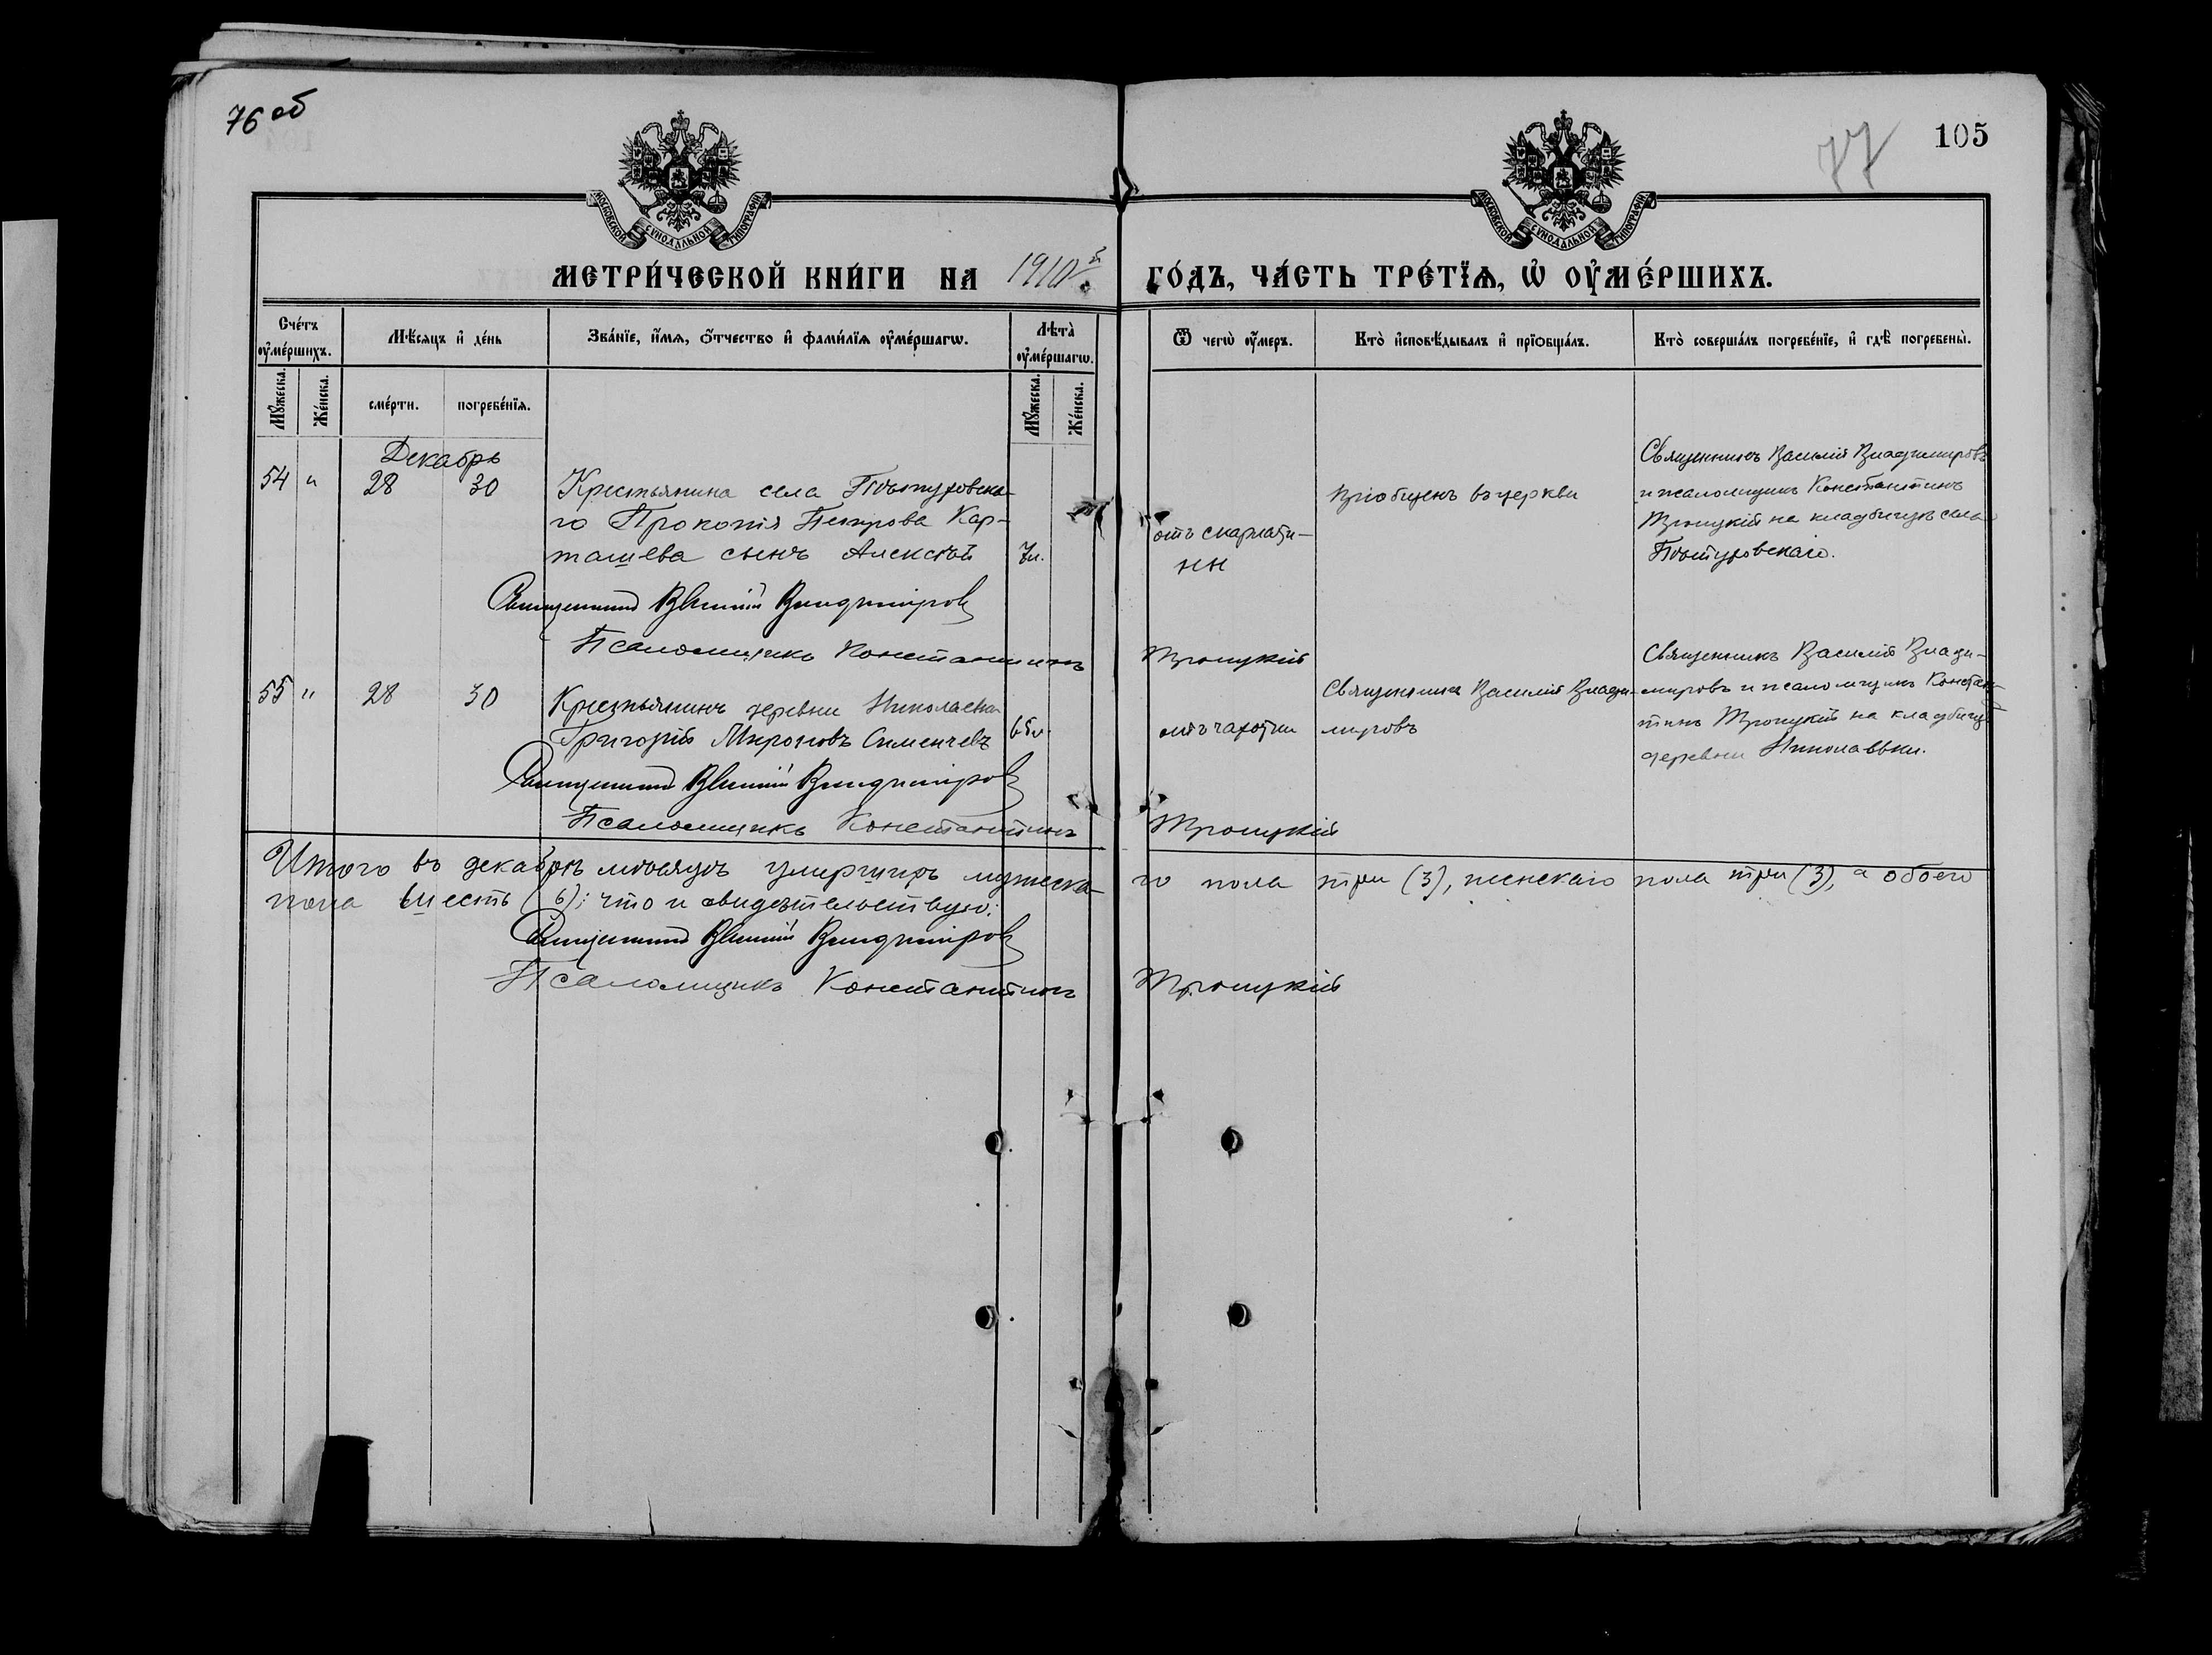 76 об
77
105
МОСКОВСКОЙ СѴНОДАЛЬНОЙ ТИПОГРАФІИ
МОСКОВСКОЙ СѴНОДАЛЬНОЙ ТИПОГРАФІИ
МЕТРИ́ЧЕСКОЙ КНИ́ГИ НА 1910й ГО́ДЪ, ЧА́СТЬ ТРЕ́ТЇѦ, Ѡ҆ ОУ҆МЕ́РШИХЪ.
Сче́тъ оу҆ме́ршихъ.
Мꙋ́жеска.
Же́нска.
Мѣ́сѧцъ и҆ де́нь
сме́рти.
погребе́нїѧ.
Зва́нїе, и҆́мѧ, ѻ҆́тчество и҆ фами́лїѧ оу҆ме́ршагѡ.
Лѣта̀ оу҆ме́ршагѡ.
Мꙋ́жеска.
Же́нска.
Ѿ чегѡ̀ оу҆́меръ.
Кто̀ и҆сповѣ́дывалъ и҆ прїѻбща́лъ.
Кто̀ соверша́лъ погребе́нїе, и҆ гдѣ̀ погребены̀.
Декабрь
54 " 28 30
Крестьянина села Пѣтуховска-
го Прокопія Петрова Кар-
ташева сынъ Алексѣй 7л.
отъ скарлати-
ны
Пріобщенъ въ церкви
Священникъ Василій Владимировъ
и псаломщикъ Константинъ
Троицкій на кладбищѣ села
Пѣтуховскаго.
Священникъ Василій Владиміровъ
Псаломщикъ Константинъ Троицкій
55 " 28 30
Крестьянинъ деревни Николаевки
Григорій Мироновъ 65л.
отъ чахотки
Священникъ Василій Влади-
мировъ
Священникъ Василій Влади-
мировъ и псаломщикъ Констан-
тинъ Троицкій на кладбищѣ
деревни Николаевки.
Священникъ Василій Владиміровъ
Псаломщикъ Константинъ Троицкій
Итого въ декабрѣ мѣсяцѣ умершихъ мужеска-го пола три (3), женскаго пола три (3), а обоего
пола шесть (6); что и свидѣтельствую:
Священникъ Василій Владиміровъ
Псаломщикъ Константинъ Троицкій